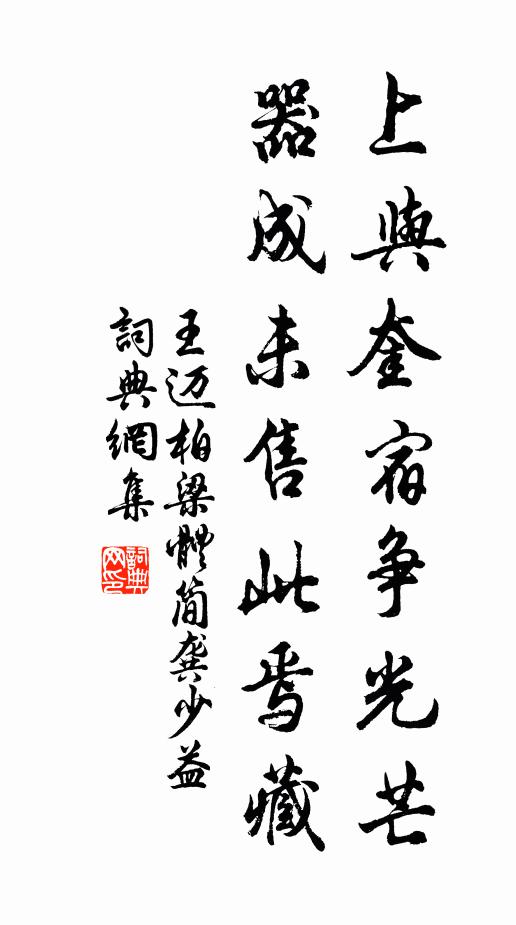 上與奎宿争光芒
器成未售此焉藏
王迈柏梁體简龚少益
詞典網集
詞典网印